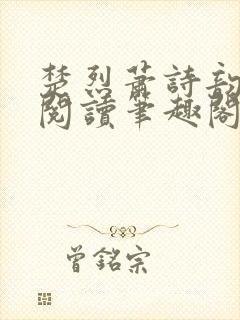 楚烈蕭詩韻
閱讀筆趣閣
曾銘宗